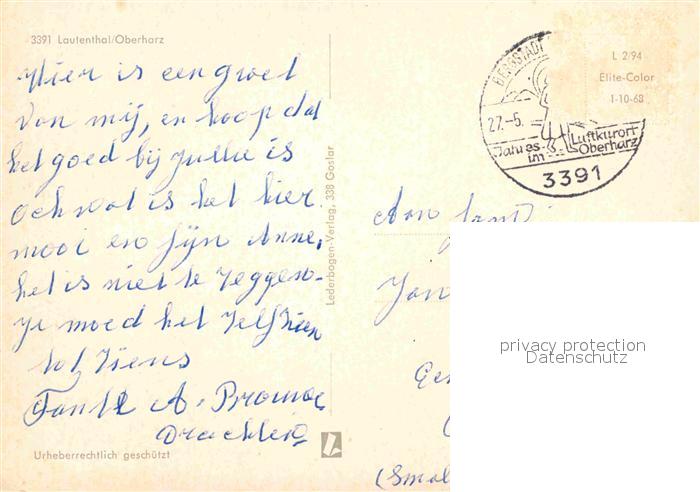 3391 Lautenthal/Oberharz
Hier is een groet
van mij, en hoop dat
het goed bij jullie is
och wat is het hier
mooi en fijn Anne,
het is niet te zeggen-
je moed het zelf zien
tot ziens
Tante A.
Urheberrechtlich geschützt
Lederbogen-Verlag, 338 Goslar
BERGSTADT
27.-6.
Luftkurort
im Oberharz
3391
L 2/94
Elite-Color
1-10-68
Aan
Jan
privacy protection
Datenschutz